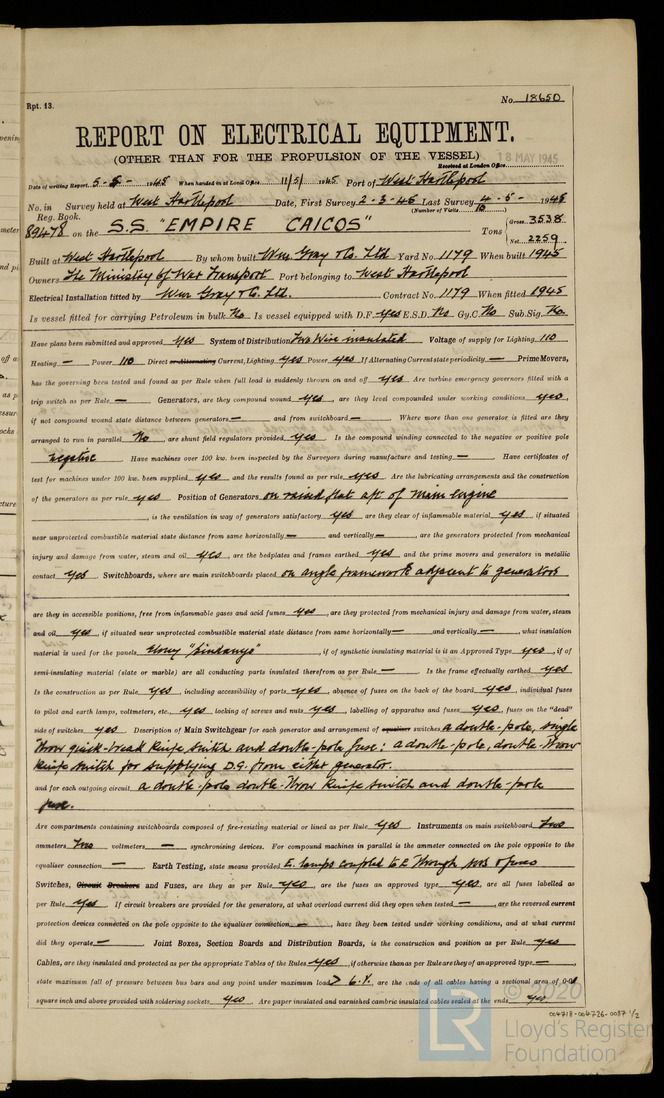 Rpt. 13.
No. 18650
REPORT ON ELECTRICAL EQUIPMENT.
(OTHER THAN FOR THE PROPULSION OF THE VESSEL)
8 MAY 1945
Received at London Office
Date of writing Report 5-5- 1945 When handed in at Local Office 11/5/ 1945 Port of West Hartlepool
No. in Survey held at West Hartlepool Date, First Survey 2-3-45 Last Survey 4-5- 1945
Reg. Book. (Number of Visits 10)
89478 on the S.S. "EMPIRE CAICOS" Tons Gross 3538 Net 2259
Built at West Hartlepool By whom built Wm Gray & Co. Ltd Yard No. 1179 When built 1945
Owners The Ministry of War Transport Port belonging to West Hartlepool
Electrical Installation fitted by Wm Gray & Co. Ltd. Contract No. 1179 When fitted 1945
Is vessel fitted for carrying Petroleum in bulk No Is vessel equipped with D.F. Yes E.S.D. No Gy.C. No Sub.Sig. No.
Have plans been submitted and approved yes System of Distribution Two Wire insulated Voltage of supply for Lighting 110
Heating — Power 110 Direct or Alternating Current, Lighting yes Power yes If Alternating Current state periodicity — Prime Movers,
has the governing been tested and found as per Rule when full load is suddenly thrown on and off yes. Are turbine emergency governors fitted with a
trip switch as per Rule — Generators, are they compound wound yes, are they level compounded under working conditions yes,
if not compound wound state distance between generators — and from switchboard — Where more than one generator is fitted are they
arranged to run in parallel No, are shunt field regulators provided yes Is the compound winding connected to the negative or positive pole
negative Have machines over 100 kw. been inspected by the Surveyors during manufacture and testing — Have certificates of
test for machines under 100 kw. been supplied yes and the results found as per rule yes Are the lubricating arrangements and the construction
of the generators as per rule yes Position of Generators on raised flat aft of main engine
, is the ventilation in way of generators satisfactory yes are they clear of inflammable material yes, if situated
near unprotected combustible material state distance from same horizontally — and vertically —, are the generators protected from mechanical
injury and damage from water, steam and oil yes, are the bedplates and frames earthed yes and the prime movers and generators in metallic
contact yes Switchboards, where are main switchboards placed on angle framework adjacent to generators
are they in accessible positions, free from inflammable gases and acid fumes yes, are they protected from mechanical injury and damage from water, steam
and oil yes, if situated near unprotected combustible material state distance from same horizontally — and vertically —, what insulation
material is used for the panels "Sindanyo", if of synthetic insulating material is it an Approved Type yes, if of
semi-insulating material (slate or marble) are all conducting parts insulated therefrom as per Rule — Is the frame effectually earthed yes
Is the construction as per Rule yes, including accessibility of parts yes, absence of fuses on the back of the board yes, individual fuses
to pilot and earth lamps, voltmeters, etc. yes locking of screws and nuts yes, labelling of apparatus and fuses yes, fuses on the "dead"
side of switches yes Description of Main Switchgear for each generator and arrangement of equaliser switches a double-pole, single
throw quick-break knife switch and double-pole fuse: a double-pole, double-throw
knife switch for supplying D.G. from either generator.
and for each outgoing circuit a double-pole double-throw knife switch and double-pole
fuse.
Are compartments containing switchboards composed of fire-resisting material or lined as per Rule yes Instruments on main switchboard two
ammeters two voltmeters — synchronising devices. For compound machines in parallel is the ammeter connected on the pole opposite to the
equaliser connection — Earth Testing, state means provided E. lamps coupled to E through sws & fuses
Switches, Circuit Breakers and Fuses, are they as per Rule yes, are the fuses an approved type yes, are all fuses labelled as
per Rule yes If circuit breakers are provided for the generators, at what overload current did they open when tested —, are the reversed current
protection devices connected on the pole opposite to the equaliser connection —, have they been tested under working conditions, and at what current
did they operate — Joint Boxes, Section Boards and Distribution Boards, is the construction and position as per Rule yes
Cables, are they insulated and protected as per the appropriate Tables of the Rules yes, if otherwise than as per Rule are they of an approved type —,
state maximum fall of pressure between bus bars and any point under maximum load > 6.V. are the ends of all cables having a sectional area of 0·01
square inch and above provided with soldering sockets yes Are paper insulated and varnished cambric insulated cables sealed at the ends yes
© 2020
004718-004726-0087 1/2
LR
Lloyd's Register
Foundation